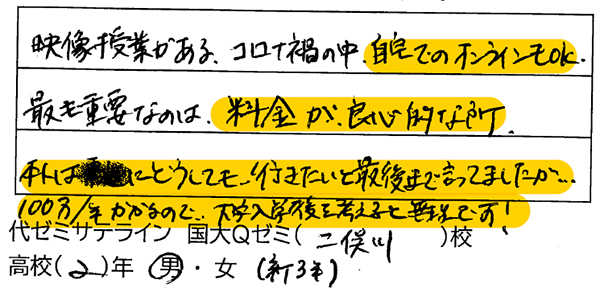 映像授業がある、コロナ禍の中、自宅でのオンラインもOK.
最も重要なのは、料金が、良心的な所。
本人は にどうしても、行きたいと最後まで言ってましたが…
100万/年かかるので、大学入学後を考えると無理です！
代ゼミサテライン 国大Qゼミ(二俣川)校
高校(2)年 男・女 (新3年)